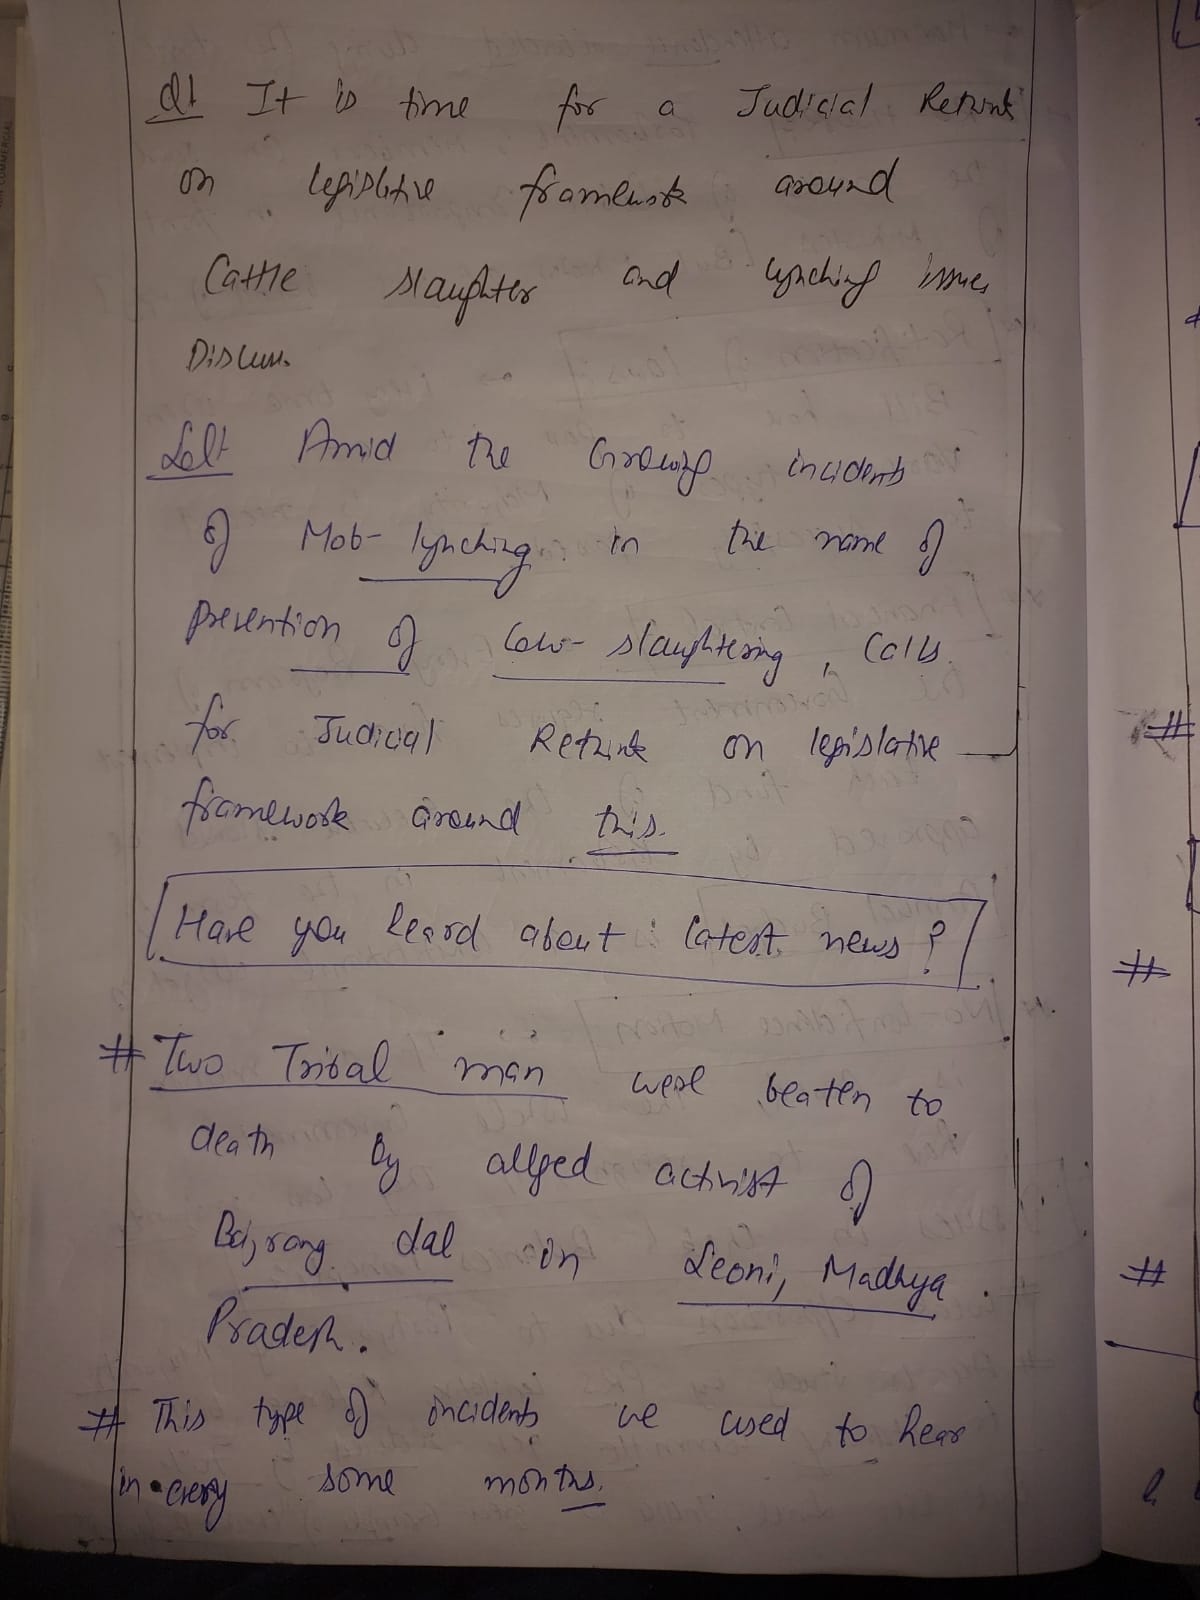 Q1 It is time for a Judicial Rethink
on legislative framework around
Cattle slaughter and lynching issues
Discuss.
Sol: Amid the Growing incidents
of Mob-lynching in the name of
prevention of Cow-slaughtering, Calls
for Judicial Rethink on legislative
framework around this.
Have you heard about latest news?
# Two Tribal man were beaten to
death by allged activist of
Bajrang dal in Seoni, Madhya
Pradesh.
# This type of incidents we used to hear
in every some months.